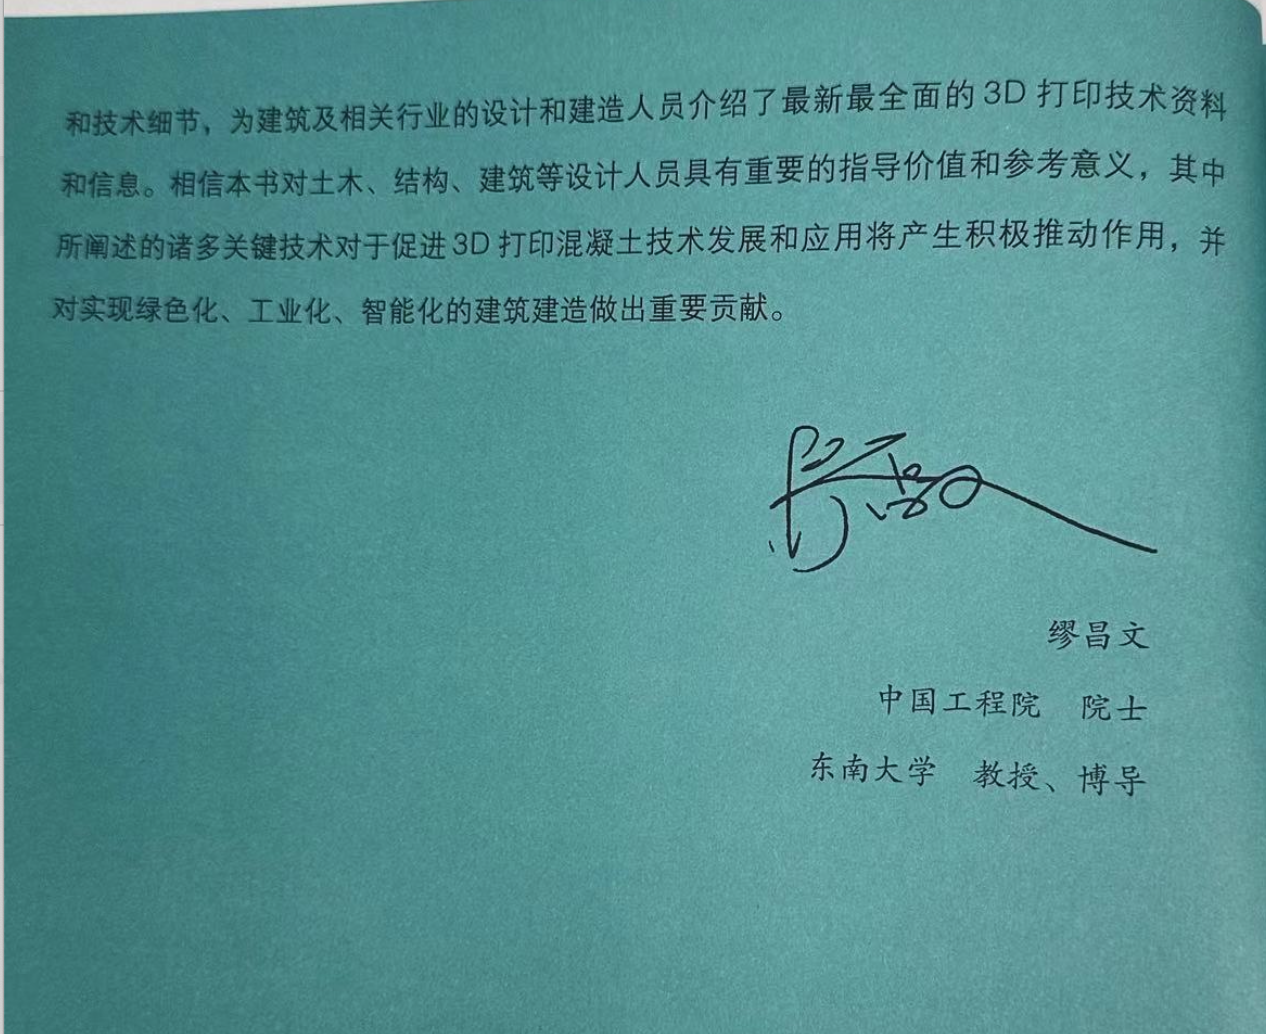 和技术细节，为建筑及相关行业的设计和建造人员介绍了最新最全面的 3D 打印技术资料
和信息。相信本书对土木、结构、建筑等设计人员具有重要的指导价值和参考意义，其中
所阐述的诸多关键技术对于促进 3D 打印混凝土技术发展和应用将产生积极推动作用，并
对实现绿色化、工业化、智能化的建筑建造做出重要贡献。
缪昌文
中国工程院 院士
东南大学 教授、博导